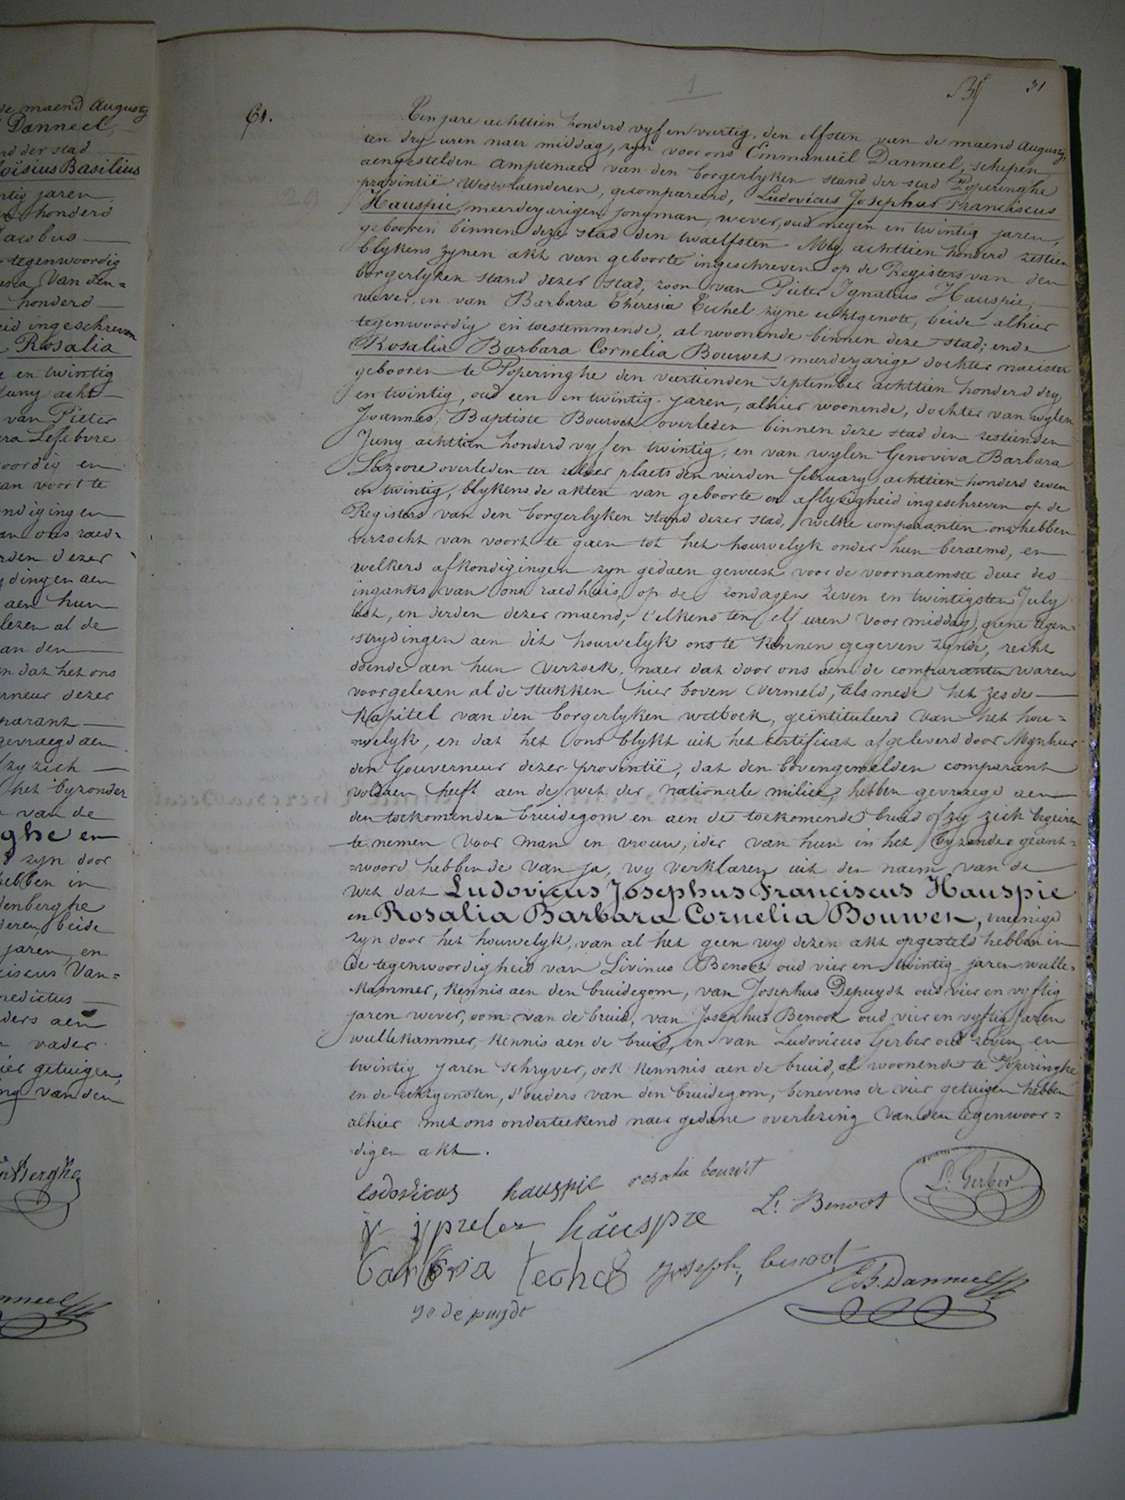 de maend Augusty
Danneel,
nd der stad
loïsius Basilius
ntig jaren
honderd
Jacobus
tegenwoordig
Van den=
honderd
eid ingeschreven
Rosalia
e en twintig
Juny acht
van Pieter
ra Lefebvre
oordig en
an voort te
ndiging en
an ons raed=
rden dezer
ydingen aen
aen hun
lezen al de
an den
n dat het ons
erneur dezer
parant
gevraegd aen
zy zich
het byzonder
van de
ghe en
zyn door
hebben in
denberghe
deren, beide
jaren, en
ciscus Van=
nedictus
ders aen
vader
ier getuigen,
ng van den
nBerghe
nneel
1
31
61.
Ten jare achttien honderd vyf en veertig, den elfsten van de maend Augusty,
ten dry uren naer middag, zyn voor ons Emmanuël Danneel, schepen
aengestelden amptenaer van den borgerlyken stand der stad Poperinghe
provintië Westvlaenderen, gecompareerd, Ludovicus Josephus Franciscus
Hauspie, meerderjarigen jongman, wever, oud negen en twintig jaren,
gebooren binnen deze stad den twaelfsten Mey achttien honderd zestien
blykens zynen akt van geboorte ingeschreven op de Registers van den
borgerlyken stand dezer stad, zoon van Pieter Ignatius Hauspie,
wever, en van Barbara Theresia Techel, zyne echtgenote, beide alhier
tegenwoordig en toestemmende, al woonende binnen deze stad; ende
Rosalia Barbara Cornelia Bouwet meerderjarige dochter naeister
gebooren te Poperinghe den veertienden September achttien honderd dry
en twintig, oud een en twintig jaren, alhier woonende, dochter van wylen
Joannes Baptiste Bouwet overleden binnen deze stad den zestienden
Juny achttien honderd vyf en twintig, en van wylen Genoviva Barbara
overleden ter zelver plaets den vierden february achttien honderd zeven
en twintig, blykens de akten van geboorte en aflyvigheid ingeschreven op de
Registers van den borgerlyken stand dezer stad, welke comparanten ons hebben
verzocht van voort te gaen tot het houwelyk onder hun beraemd, en
welkers afkondigingen zyn gedaen geweest voor de voornaemste deur des
inganks van ons raedhuis, op de zondagen zeven en twintigsten July
lest, en derden dezer maend, t'elkens ten elf uren voor middag, geene tegen=
strydingen aen dit houwelyk ons te kennen gegeven zynde, recht
doende aen hun verzoek, naer dat door ons aen de comparanten waren
voorgelezen al de stukken hier boven vermeld, als mede het zesde
kapitel van den borgerlyken wetboek, geïntituleerd van het hou=
welyk, en dat het ons blykt uit het certificat afgeleverd door Mynheer
den Gouverneur dezer provintië, dat den bovengemelden comparant
voldaen heeft aen de wet der nationale militie, hebben gevraegd aen
den toekomenden bruidegom en aen de toekomende bruid of zy zich begeiren
te nemen voor man en vrouw, ider van hun in het byzonder geant=
woord hebbende van ja, wy verklaren uit den naem van de
wet dat Ludovicus Josephus Franciscus Hauspie
en Rosalia Barbara Cornelia Bouwet, vereenigd
zyn door het houwelyk, van al het geen wy dezen akt opgesteld hebben in
de tegenwoordigheid van Livinus Benoot oud vier en twintig jaren wulle=
kammer, kennis aen den bruidegom, van Josephus Depuydt oud vier en vyftig
jaren wever, oom van de bruid, van Josephus Benoot oud vier en vyftig jaren
wullekammer, kennis aen de bruid, en van Ludovicus Gerber oud zeven en
twintig jaren schryver, ook kennis aen de bruid, al woonende te Poperinghe
en de echtgenoten, d'ouders van den bruidegom, benevens de vier getuigen hebben
alhier met ons onderteekend naer gedane overlezing van den tegenwoor=
digen akt.
Lodovicus hauspie rosalia bouwet
L. Benoot
L. Gerber
hauspie
joseph benoot
E.B. Danneel
jo de puydt